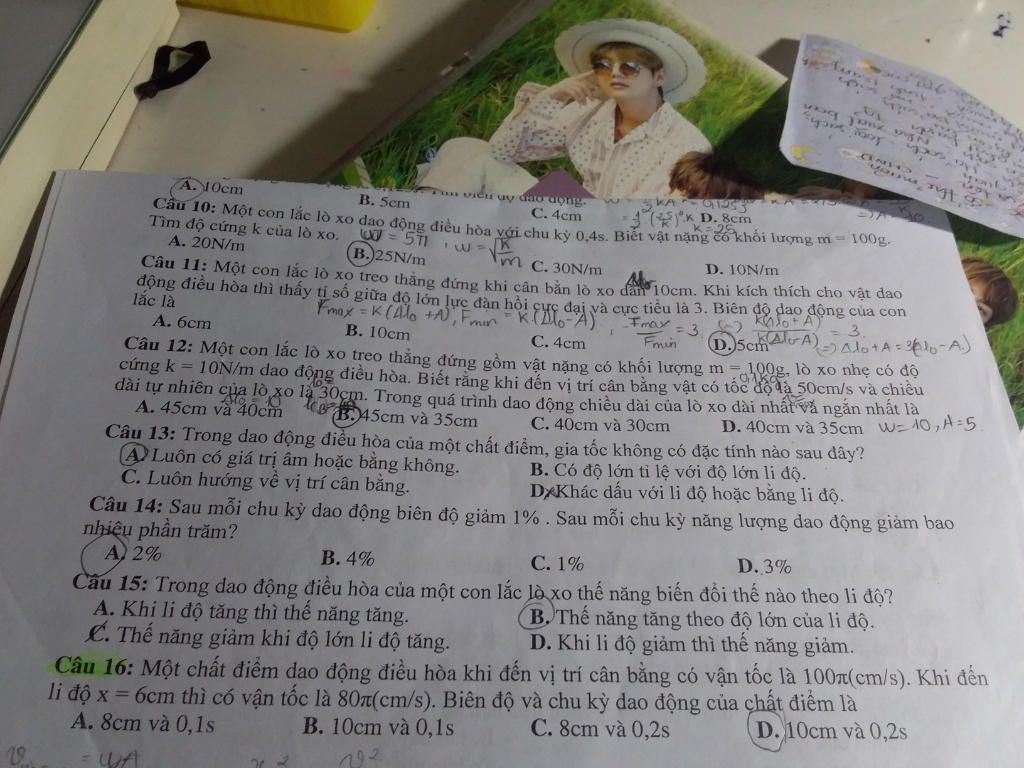 A. 10cm B. 5cm C. 4cm D. 8cm
Câu 10: Một con lắc lò xo dao động điều hòa với chu kỳ 0,4s. Biết vật nặng có khối lượng m = 100g.
k = 25
Tìm độ cứng k của lò xo. W = 5π , w = √k/m
A. 20N/m B. 25N/m C. 30N/m D. 10N/m
Câu 11: Một con lắc lò xo treo thẳng đứng khi cân bằn lò xo dãn 10cm. Khi kích thích cho vật dao
động điều hòa thì thấy tỉ số giữa độ lớn lực đàn hồi cực đại và cực tiểu là 3. Biên độ dao động của con
lắc là Fmax = K(Δl0 + A), Fmin = K(Δl0 - A), Fmax/Fmin = 3 (=) K(Δl0 + A)/K(Δl0 - A) = 3.
A. 6cm B. 10cm C. 4cm D. 5cm (=) Δl0 + A = 3(Δl0 - A)
Câu 12: Một con lắc lò xo treo thẳng đứng gồm vật nặng có khối lượng m = 100g, lò xo nhẹ có độ
cứng k = 10N/m dao động điều hòa. Biết rằng khi đến vị trí cân bằng vật có tốc độ là 50cm/s và chiều
dài tự nhiên của lò xo là 30cm. Trong quá trình dao động chiều dài của lò xo dài nhất và ngắn nhất là
A. 45cm và 40cm B. 45cm và 35cm C. 40cm và 30cm D. 40cm và 35cm W = 10, A = 5
Câu 13: Trong dao động điều hòa của một chất điểm, gia tốc không có đặc tính nào sau đây?
A. Luôn có giá trị âm hoặc bằng không. B. Có độ lớn tỉ lệ với độ lớn li độ.
C. Luôn hướng về vị trí cân bằng. D. Khác dấu với li độ hoặc bằng li độ.
Câu 14: Sau mỗi chu kỳ dao động biên độ giảm 1% . Sau mỗi chu kỳ năng lượng dao động giảm bao
nhiêu phần trăm?
A. 2% B. 4% C. 1% D. 3%
Câu 15: Trong dao động điều hòa của một con lắc lò xo thế năng biến đổi thế nào theo li độ?
A. Khi li độ tăng thì thế năng tăng. B. Thế năng tăng theo độ lớn của li độ.
C. Thế năng giảm khi độ lớn li độ tăng. D. Khi li độ giảm thì thế năng giảm.
Câu 16: Một chất điểm dao động điều hòa khi đến vị trí cân bằng có vận tốc là 100π(cm/s). Khi đến
li độ x = 6cm thì có vận tốc là 80π(cm/s). Biên độ và chu kỳ dao động của chất điểm là
A. 8cm và 0,1s B. 10cm và 0,1s C. 8cm và 0,2s D. 10cm và 0,2s
= WA